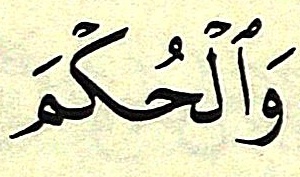 وَٱلۡحُكۡمَ